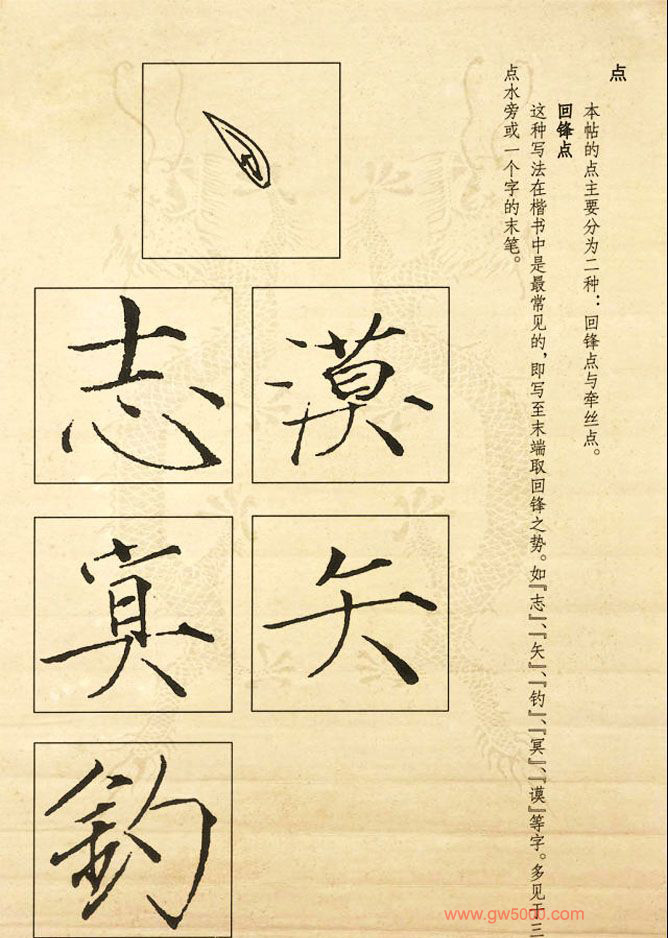 点
本帖的点主要分为二种：回锋点与牵丝点。
回锋点
这种写法在楷书中是最常见的，即写至末端取回锋之势。如『志』、『矢』、『钓』、『冥』、『谟』等字。多见于三
点水旁或一个字的末笔。
漠
志
矢
冥
釣
www.gw5000.com